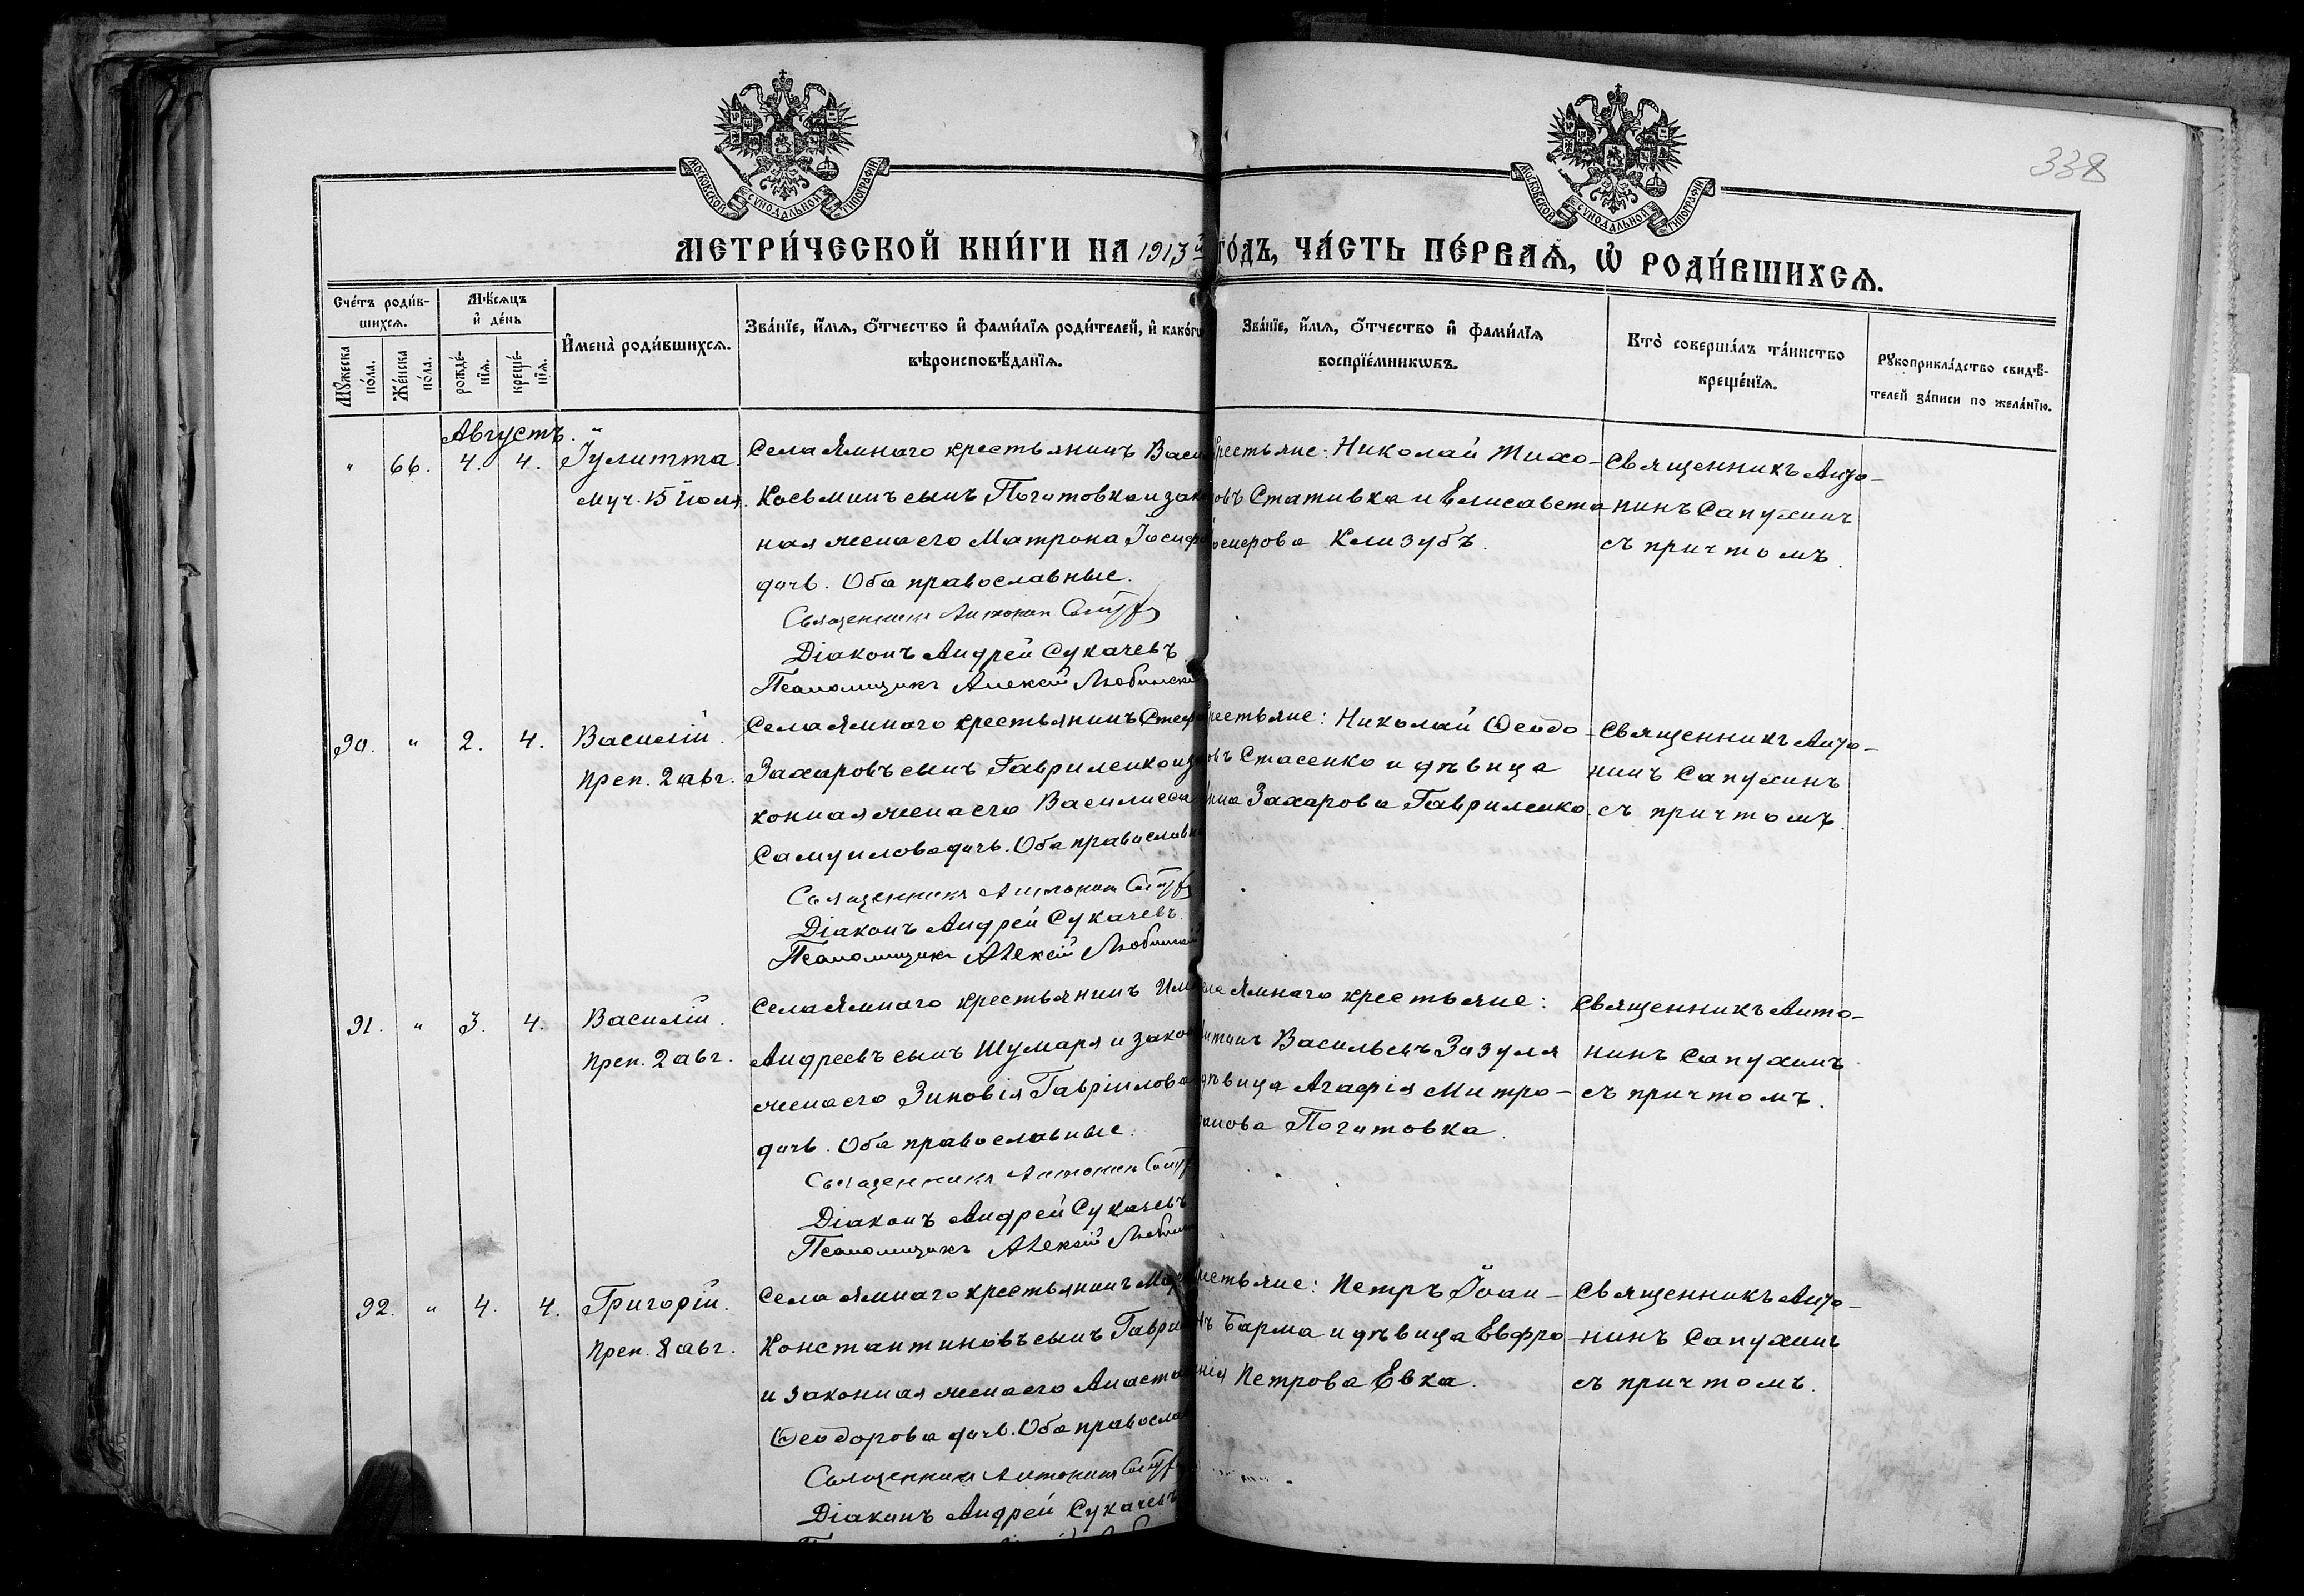 338
МОСКОВСКОЙ СУНОДАЛЬНОЙ ТИПОГРАФІИ
МОСКОВСКОЙ СУНОДАЛЬНОЙ ТИПОГРАФІИ
МЕТРИ́ЧЕСКОЙ КНИ́ГИ НА 1913й ГО́ДЪ, ЧА́СТЬ ПЕ́РВАѦ, Ѡ҆ РОДИ́ВШИХСѦ.
Сче́тъ роди́в-
шихсѧ.
Мꙋ́жеска
по́ла.
Же́нска
по́ла.
Мѣ́сѧцъ
и҆ де́нь
рожде́-
нїѧ.
креще́-
нїѧ.
И҆мена̀ роди́вшихсѧ.
Зва́нїе, и҆́мѧ, ѻ҆́тчество и҆ фами́лїѧ роди́телей, и҆ како́гѡ
вѣроисповѣ́данїѧ.
Зва́нїе, и҆́мѧ, ѻ҆́тчество и҆ фами́лїѧ
воспрїе́мникѡвъ.
Кто̀ соверша́лъ та́инство
креще́нїѧ.
Рꙋкоприкла́дство свидѣ́-
телей за́писи по жела́нїю.
Августъ.
" 66. 4. 4.
Іулитта.
муч. 15 Іюля.
Села Ямнаго крестьянинъ Васи
Косьминъ сынъ Поготовка и зак
ная жена его Матрона Іосиф
дочь. Оба православные.
Священникъ Антонин
Діаконъ Андрей Сукачевъ
Псаломщикъ Алексій Любинскі
Крестьяне: Николай Тихо-
овъ Стативка и Елисавета
Клизубъ.
Священникъ Анто-
нинъ Сапухинъ
съ причтомъ.
90. " 2. 4.
Василій.
преп. 2 авг.
Села Ямнаго крестьянинъ Стеф
Захаровъ сынъ Гавриленко и за
конная жена его Василисса
Самуилова дочь. Оба православн
Священникъ Антонин
Діаконъ Андрей Сукачевъ.
Псаломщикъ Алексій Любинскій
Крестьяне: Николай Ѳеодо-
овъ Стасенко и дѣвица
Захарова Гавриленко.
Священникъ Анто-
нинъ Сапухинъ
съ причтомъ.
91. " 3. 4.
Василій.
преп. 2 авг.
Села Ямнаго крестьянинъ
Андреевъ сынъ Шумаря и закон
жена его Зиновія Гавріилова
дочь. Оба православные.
Священникъ Антонин
Діаконъ Андрей Сукачевъ.
Псаломщикъ Алексій Любин
Села Ямнаго крестьяне:
Васильевъ Зозуля
дѣвица Агафія Митро-
фанова Поготовка.
Священникъ Анто-
нинъ Сапухинъ
съ причтомъ.
92. " 4. 4.
Григорій.
преп. 8 авг.
Села Ямнаго крестьянинъ
Константиновъ сынъ Гаври
и законная жена его Анаста
Ѳеодорова дочь. Оба правосла
Священникъ Антонинъ
Діаконъ Андрей Сукачевъ
Крестьяне: Петръ Іоан-
нъ Барма и дѣвица Евфро-
нія Петрова Евка.
Священникъ Анто-
нинъ Сапухинъ
съ причтомъ.